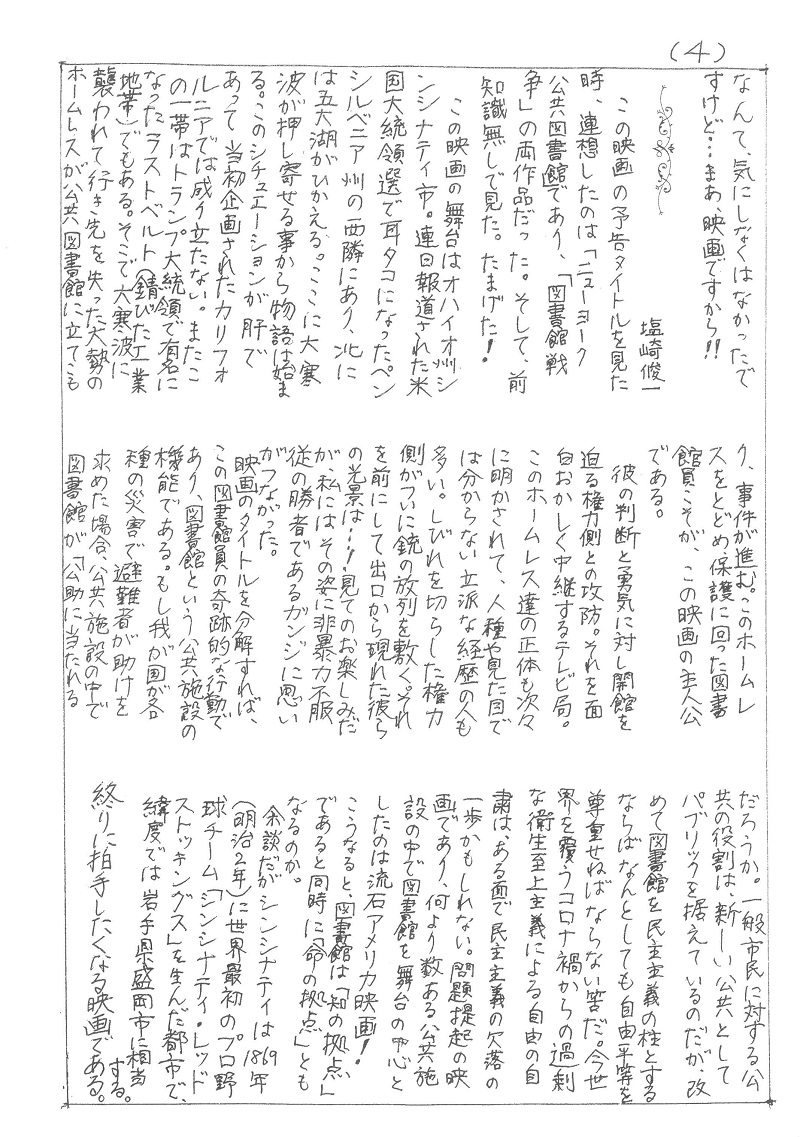 (4)
なんて、気にしなくはなかったで
すけど…まあ、映画ですから!!
塩崎俊一
この映画の予告タイトルを見た
時、連想したのは「ニューヨーク
公共図書館であり、「図書館戦
争」の両作品だった。そして、前
知識無しで見た。たまげた!
この映画の舞台はオハイオ州シ
ンシナティ市。連日報道された米
国大統領選で耳タコになったペン
シルベニア州の西隣にあり、北に
は五大湖がひかえる。ここに大寒
波が押し寄せる事から物語は始ま
る。このシチュエーションが肝で
あって当初企画されたカリフォ
ルニアでは成り立たない。またこ
の一帯はトランプ大統領で有名に
なったラストベルト(錆びた工業
地帯)でもある。そこで大寒波に
襲われて行き先を失った大勢の
ホームレスが公共図書館に立てこも
り、事件が進む。このホームレ
スをとどめ、保護に回った図書
館員こそが、この映画の主人公
である。
彼の判断と勇気に対し開館を
迫る権力側との攻防。それを面
白おかしく中継するテレビ局。
このホームレス達の正体も次々
に明かされて、人種や見た目で
は分からない立派な経歴の人も
多い。しびれを切らした権力
側がついに銃の放列を敷く。それ
を前にして出口から現れた彼ら
の光景は…!見てのお楽しみだ
が、私にはその姿に非暴力不服
従の勝者であるガンジに思い
がつながった。
映画のタイトルを分解すれば、
この図書館員の奇跡的な行動で
あり、図書館という公共施設の
機能である。もし我が国が各
種の災害で避難者が助けを
求めた場合、公共施設の中で
図書館が「公助に当たれる
だろうか。一般市民に対する公
共の役割は、新しい公共として
パブリックを据えているのだが、改
めて図書館を民主主義の柱とする
ならばなんとしても自由平等を
尊重せねばならない筈だ。今世
界を覆うコロナ禍からの過剰
な衛生至上主義による自由の自
粛は、ある面で民主主義の欠落の
一歩かもしれない。問題提起の映
画であり、何より数ある公共施
設の中で図書館を舞台の中心と
したのは流石アメリカ映画!
こうなると、図書館は「知の拠点」
であると同時に「命の拠点」とも
なるのか。
余談だがシンシナティは1869年
(明治2年)に世界最初のプロ野
球チーム「シンシナティ・レッド
ストッキングス」を生んだ都市で、
緯度では岩手県盛岡市に相当
する。
終りに拍手したくなる映画である。